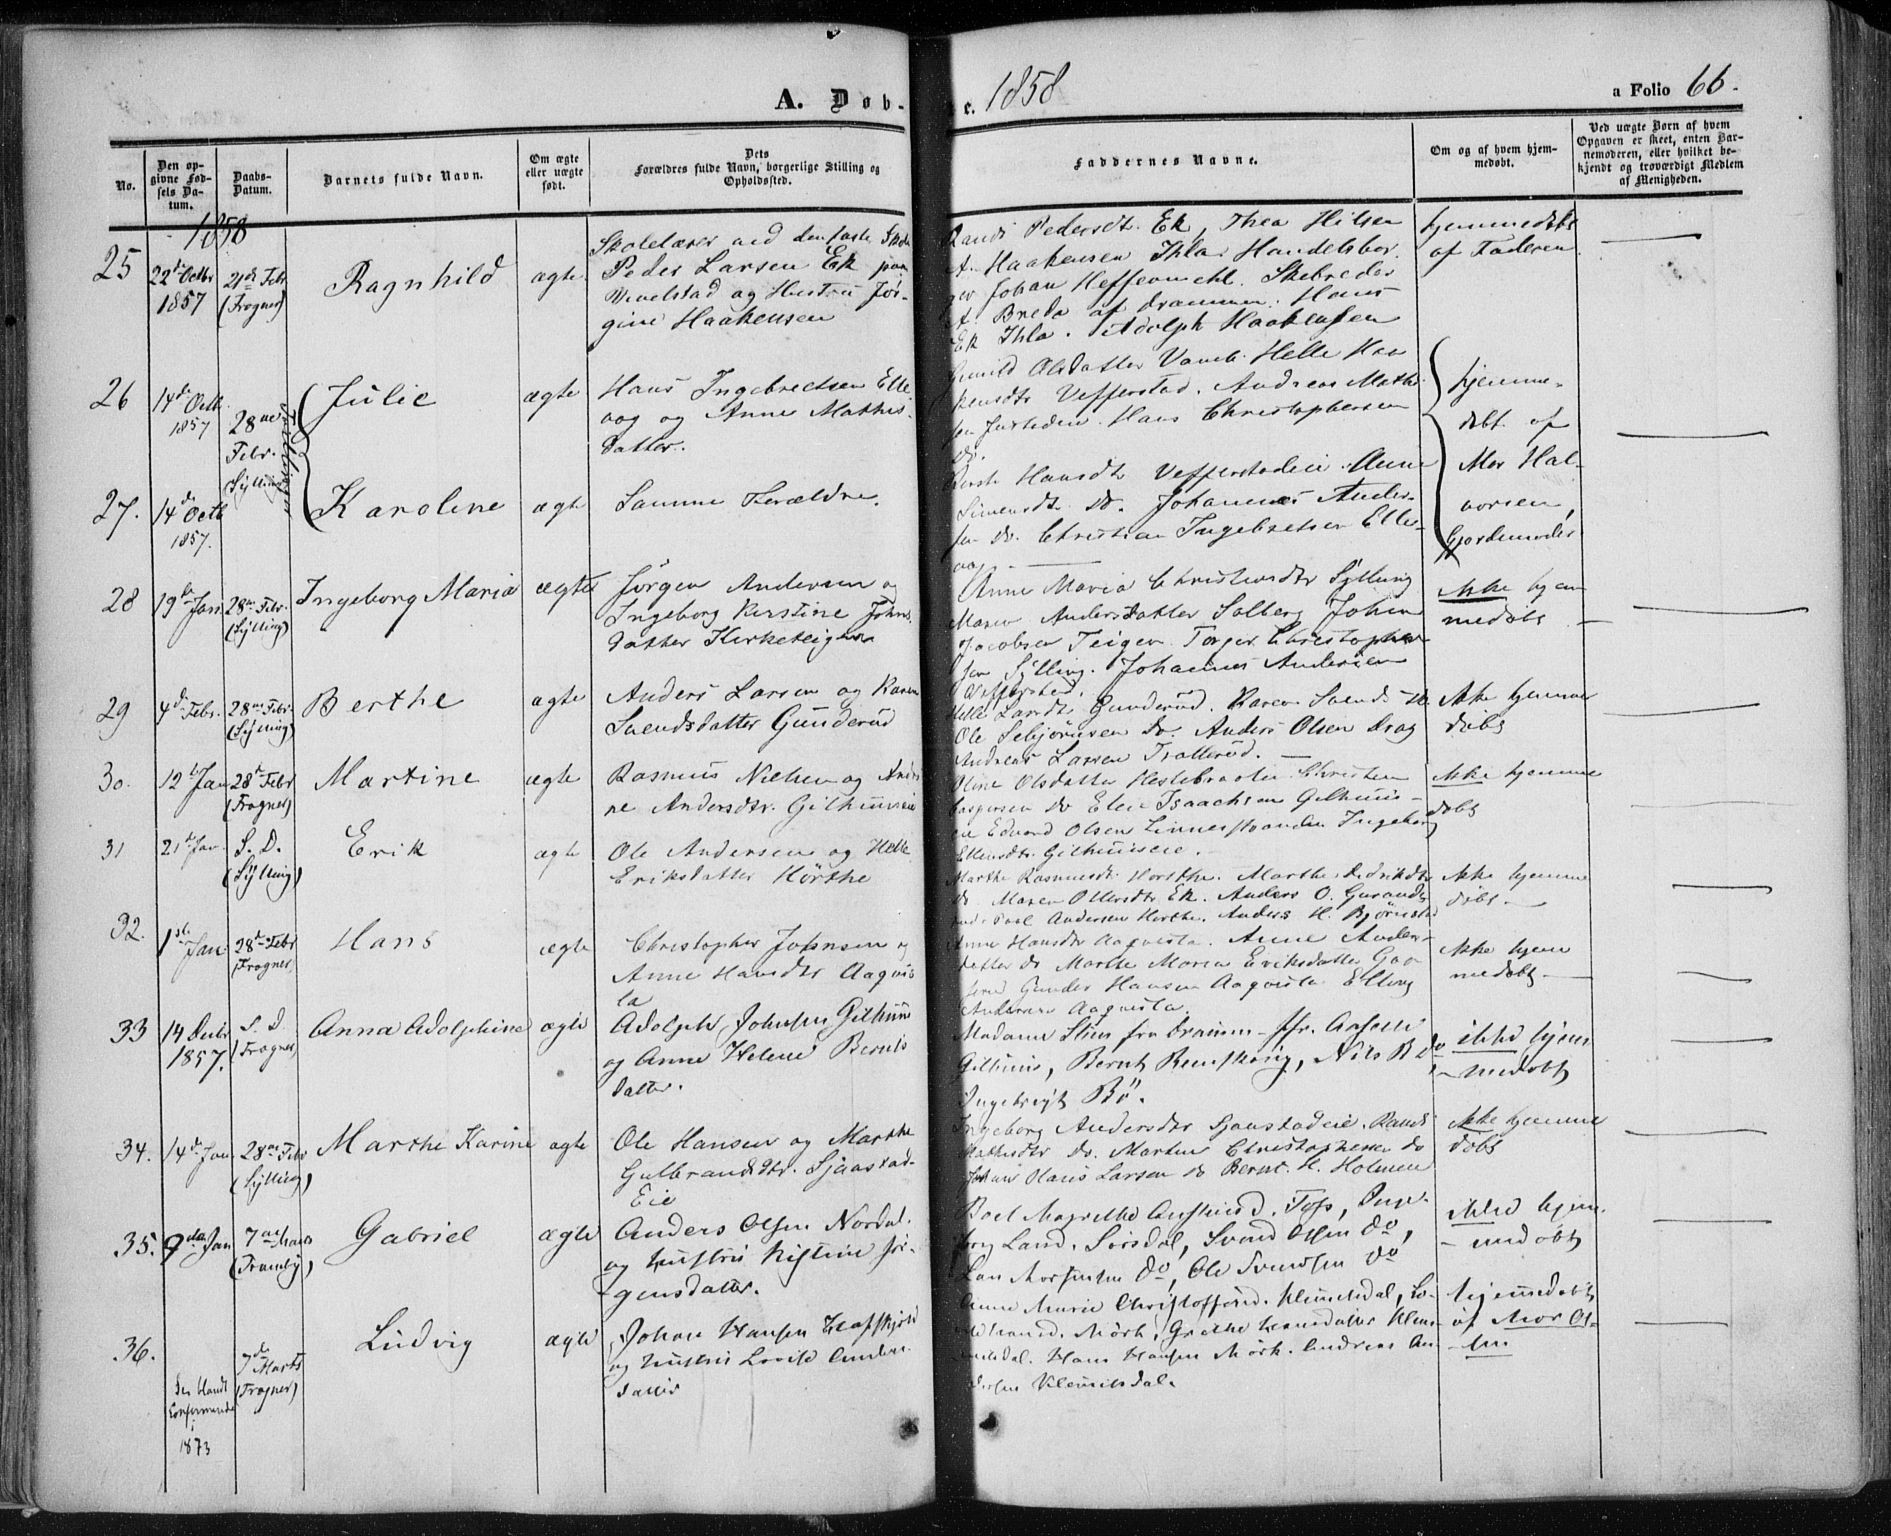 A. Døb-
e. 1858
a Folio 66.
No.
Den op-
givne Fød-
sels Da-
tum.
Daabs-
Datum.
Barnets fulde Navn.
Om ægte
eller uægte
født.
Dets
Forældres fulde Navn, borgerlige Stilling og
Opholdssted.
Faddernes Navne.
Om og af hvem hjem-
medøbt.
Ved uægte Børn af hvem
Opgaven er skeet, enten Bar-
nemoderen, eller hvilket be-
kjendt og troværdigt Medlem
af Menigheden.
1858
25
22de Octbr
1857
21de Febr
(Frogner)
Ragnhild
ægte
Skolelærer ved den faste Skole
Peder Larsen Ek paa
og Hustru Jør-
gine Haakensen
Randi Pedersdt. Ek, Thea Hilsen
A. Haakensen Ihla. Handelsbor
ger Johan
A. Breda af Drammen. Hans
Ek Ihla. Adolph Haakensen
hjemmedøbt
af Faderen
26
14de Octb.
1857
28de
Febr.
Sylling
Tvillinger
Julie
ægte
Hans Ingebretsen Elle
vog og Anne Mathis-
datter.
Gunild Olsdatter Helle Haa
kensdtr Vefferstad. Andreas Mathi
sen Hans Christophersen
do.
hjemme-
døbt af
Mor Hal-
vorsen,
Gjordemoder
27.
14de Octb
1857.
Karoline
ægte
Samme Forældre.
Hansdtr Vefferstadeie. Anne
Simensdtr do. Johannes Ander-
sen do. Christian Ingebretsen Elle-
vog
28
19de Jan
28de Febr.
(Sylling)
Ingeborg Maria
ægte
Jørgen Andersen og
Ingeborg Kirstine Johns
datter Kirketeigen
Anne Maria Christensdtr Sylling
Maren Andersdatter Solberg John
Jacobsen Teigen Torger Christopher
sen Sylling. Johannes Andersen
Vefferstad.
Ikke hjem
medøbt
29
4de Febr.
28de Febr.
(Sylling)
Berthe
ægte
Anders Larsen og Karen
Svendsdatter Gunderud
Helle Larsdtr Gunderud. Karen Svendsdtr
Ole do. Anders Olsen Drag
Andreas Larsen Trollerud.
Ikke hjemme
døbt
30.
12te Jan
28de Febr
(Frogner)
Martine
ægte
Rasmus Nielsen og An
ne Andersdtr. Gilhuuseie
Oline Olsdatter Hestebraaten Christen
do Elen Isaachsen Gilhuus-
eie Edvard Olsen Linnesstranden Ingeborg
Ellensdtr. Gilhuuseie.
Ikke hjemme
døbt
31
21de Jan.
S. D.
(Sylling)
Erik
ægte
Ole Andersen og Helle
Eriksdatter Hörthe
Marthe Rasmusdt. Horthe. Marthe Didriksdtr
do Maren Ollersdtr. Ek. Anders O.
Poul Andersen Horthe. Anders H. Bjørnstad
Ikke hjemme
døbt
32.
1ste
Jan.
28de Febr
(Frogner)
Hans
ægte
Christopher Johnsen og
Anne Hansdtr Aaqvis
ta
Anne Hansdtr Aaqvista. Anne Anders-
datter do Marthe Maria Eriksdatter
Gunder Hansen Aaqvista Elling
Andersen Aaqvista.
Ikke hjem
medøbt
33
14 Decbr
1857.
S. D
(Frogner)
Anna Adolphine
ægte
Adolph Johnsen Gilhuus
og Anne Helene Bernts
datter.
Madame fra Drammen
Gilhuus, Bernt Nils B do
Ingebrigt Bö.
ikke hjem
medøbt
34.
14de Jan
28de Febr
(Sylling)
Marthe Karine
ægte
Ole Hansen og Marthe
Gulbrandsdtr. Sjaastad-
Eie
Ingeborg Andersdtr Sjaastadeie. Randi
Mathisdtr do. Marten Christophersen do
Hans Larsen do Bernt. H. Holmen
Ikke hjemme
døbt
35.
9de Jan
7de Marts
(Tranby)
Gabriel
ægte
Anders Olsen Nordal.
og Hustru Kistine Jör-
gensdatter.
Boel Magrethe Foss, Inge-
borg Land. Sörsdal, Svend Olsen do,
Lars do, Ole Svendsen do
ikke hjem-
medøbt
36.
7de Marts
(Frogner)
Ludvig
ægte
Johan Hansen
og Hustru Lovise Anders
datter
Anne Marie
Mörk. Grethe Hansdatter
Hans Hansen Mörk. Andreas An
dersen
hjemmedøbt
af Mor Ol-
sen
Confirmeret
1873